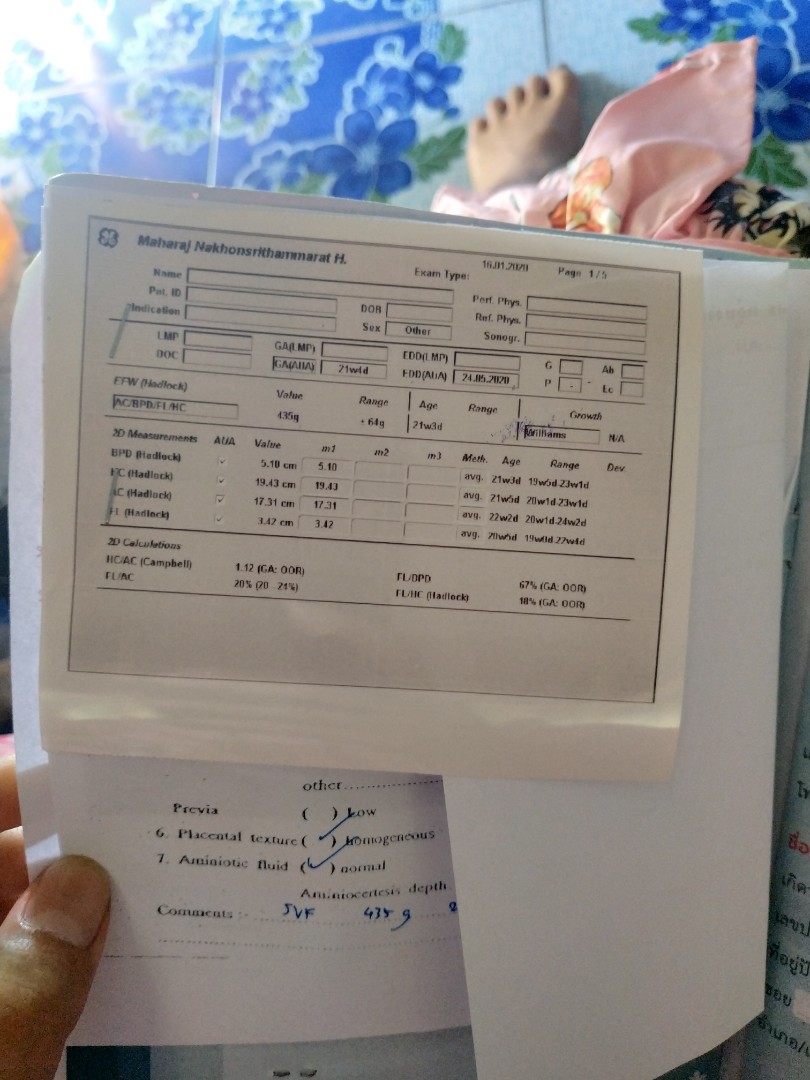 Maharaj Nakhonsrithammarat H. 16.01.2020 Page 1/5
Exam Type:
Name
Pat. ID DOB Perf. Phys.
Indication Sex Other Ref. Phys.
Sonogr.
LMP GA(LMP) EDD(LMP) G Ab
DOC GA(AUA) 21w4d EDD(AUA) 24.05.2020 P - - Ec
EFW (Hadlock) Value Range Age Range Growth
AC/BPD/FL/HC 435g ± 64g 21w3d Williams N/A
2D Measurements AUA Value m1 m2 m3 Meth. Age Range Dev.
BPD (Hadlock) 5.10 cm 5.10 avg. 21w3d 19w5d-23w1d
HC (Hadlock) 19.43 cm 19.43 avg. 21w5d 20w1d-23w1d
AC (Hadlock) 17.31 cm 17.31 avg. 22w2d 20w1d-24w2d
FL (Hadlock) 3.42 cm 3.42 avg. 20w5d 19w0d-22w4d
2D Calculations
HC/AC (Campbell) 1.12 (GA: OOR) FL/BPD 67% (GA: OOR)
FL/AC 20% (20 - 24%) FL/HC (Hadlock) 18% (GA: OOR)
other
Previa ( ) Low
6. Placental texture ( ) homogeneous
7. Aminiotic fluid ( ) normal
Aminiocertesis depth
Comments :- SVF 435 g